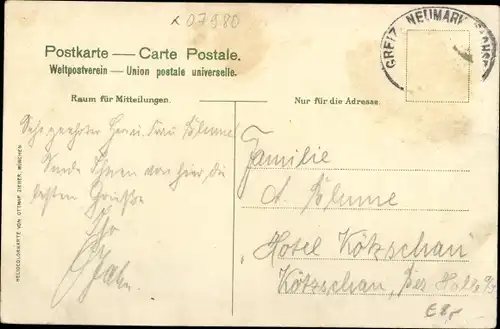 07980
GREIZ NEUMARK
Postkarte — Carte Postale.
Weltpostverein — Union postale universelle.
Raum für Mitteilungen.
Nur für die Adresse.
Sehr geehrter Herr u. Frau Blume!
Sende Ihnen von hier die
besten Grüße
Ihr
Familie
A. Blume
"Hotel Kötzschau"
Kötzschau, bei Halle a/S
€ 8,-
HELIOCOLORKARTE VON OTTMAR ZIEHER, MÜNCHEN